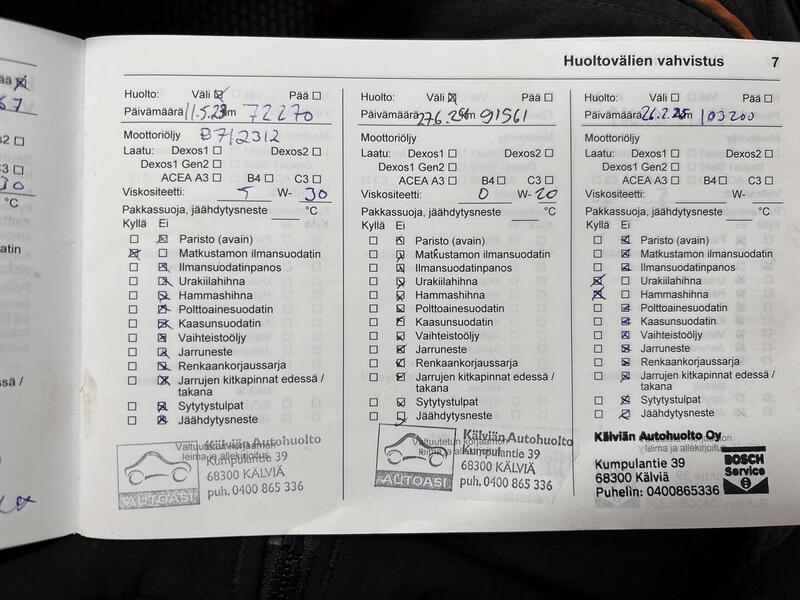 Huoltovälien vahvistus 7
Huolto: Väli ☒ Pää ☐
Päivämäärä 11.5.23 km 72270
Moottoriöljy B712312
Laatu: Dexos1 ☐ Dexos2 ☐
Dexos1 Gen2 ☐
ACEA A3 ☐ B4 ☐ C3 ☐
Viskositeetti: 5 W- 30
Pakkassuoja, jäähdytysneste °C
Kyllä Ei
☐ ☒ Paristo (avain)
☒ ☐ Matkustamon ilmansuodatin
☐ ☒ Ilmansuodatinpanos
☐ ☒ Urakiilahihna
☐ ☒ Hammashihna
☐ ☒ Polttoainesuodatin
☐ ☒ Kaasunsuodatin
☐ ☒ Vaihteistoöljy
☐ ☒ Jarruneste
☐ ☒ Renkaankorjaussarja
☐ ☒ Jarrujen kitkapinnat edessä /
takana
☐ ☒ Sytytystulpat
☐ ☒ Jäähdytysneste
Valtuutetun korjaamon
leima ja allekirjoitus
Kälviän Autohuolto
Kumpulantie 39
68300 KÄLVIÄ
puh. 0400 865 336
AUTOASI
Huolto: Väli ☒ Pää ☐
Päivämäärä 27.6.24 km 91561
Moottoriöljy
Laatu: Dexos1 ☐ Dexos2 ☐
Dexos1 Gen2 ☐
ACEA A3 ☐ B4 ☐ C3 ☐
Viskositeetti: 0 W- 20
Pakkassuoja, jäähdytysneste °C
Kyllä Ei
☐ ☒ Paristo (avain)
☐ ☒ Matkustamon ilmansuodatin
☐ ☒ Ilmansuodatinpanos
☐ ☒ Urakiilahihna
☐ ☒ Hammashihna
☐ ☒ Polttoainesuodatin
☐ ☒ Kaasunsuodatin
☐ ☒ Vaihteistoöljy
☐ ☒ Jarruneste
☐ ☒ Renkaankorjaussarja
☐ ☒ Jarrujen kitkapinnat edessä /
takana
☐ ☒ Sytytystulpat
☐ ☒ Jäähdytysneste
Valtuutetun korjaamon
leima ja allekirjoitus
Kälviän Autohuolto
Kumpulantie 39
68300 KÄLVIÄ
puh. 0400 865 336
AUTOASI
Huolto: Väli ☐ Pää ☐
Päivämäärä 26.2.25 km 103200
Moottoriöljy
Laatu: Dexos1 ☐ Dexos2 ☐
Dexos1 Gen2 ☐
ACEA A3 ☐ B4 ☐ C3 ☐
Viskositeetti: W-
Pakkassuoja, jäähdytysneste °C
Kyllä Ei
☐ ☒ Paristo (avain)
☐ ☒ Matkustamon ilmansuodatin
☐ ☒ Ilmansuodatinpanos
☒ ☐ Urakiilahihna
☒ ☐ Hammashihna
☐ ☒ Polttoainesuodatin
☐ ☒ Kaasunsuodatin
☐ ☒ Vaihteistoöljy
☐ ☒ Jarruneste
☐ ☒ Renkaankorjaussarja
☐ ☒ Jarrujen kitkapinnat edessä /
takana
☐ ☒ Sytytystulpat
☐ ☒ Jäähdytysneste
Valtuutetun korjaamon
leima ja allekirjoitus
Kälviän Autohuolto Oy
Kumpulantie 39
68300 Kälviä
Puhelin: 0400865336
BOSCH
Service